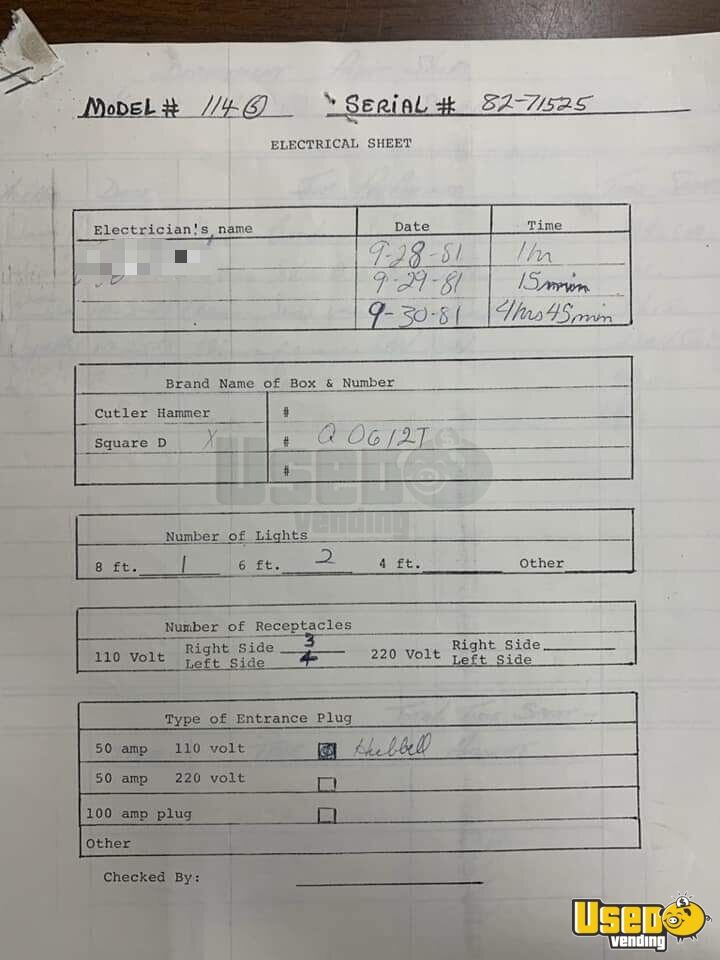 MODEL # 114 6 SERIAL # 82-71525
ELECTRICAL SHEET
Electrician's name Date Time
9-28-81 1hr
9-29-81 15min
9-30-81 4hrs45min
Brand Name of Box & Number
Cutler Hammer #
Square D X # QO612T
#
Number of Lights
8 ft. 1 6 ft. 2 4 ft. Other
Number of Receptacles
110 Volt Right Side 3 220 Volt Right Side
Left Side 4 Left Side
Type of Entrance Plug
50 amp 110 volt Hubbell
50 amp 220 volt
100 amp plug
Other
Checked By:
USED vending
USED vending